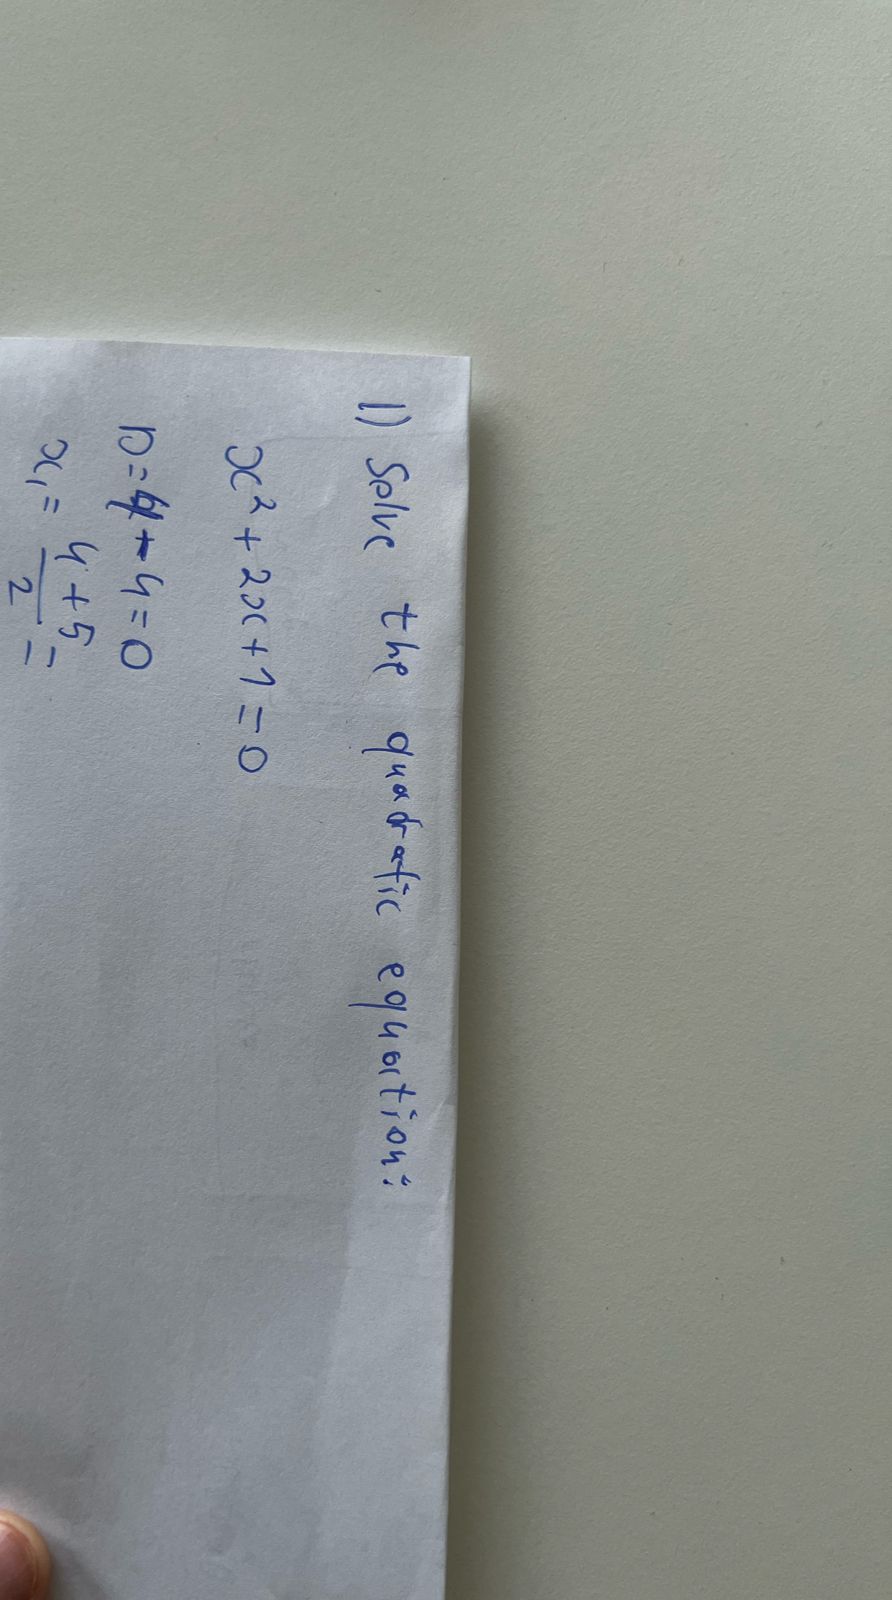 1) Solve the quadratic equation:
x² + 2x + 1 = 0
D = 4 - 4 = 0
x₁ = (4 + 5)/2 =